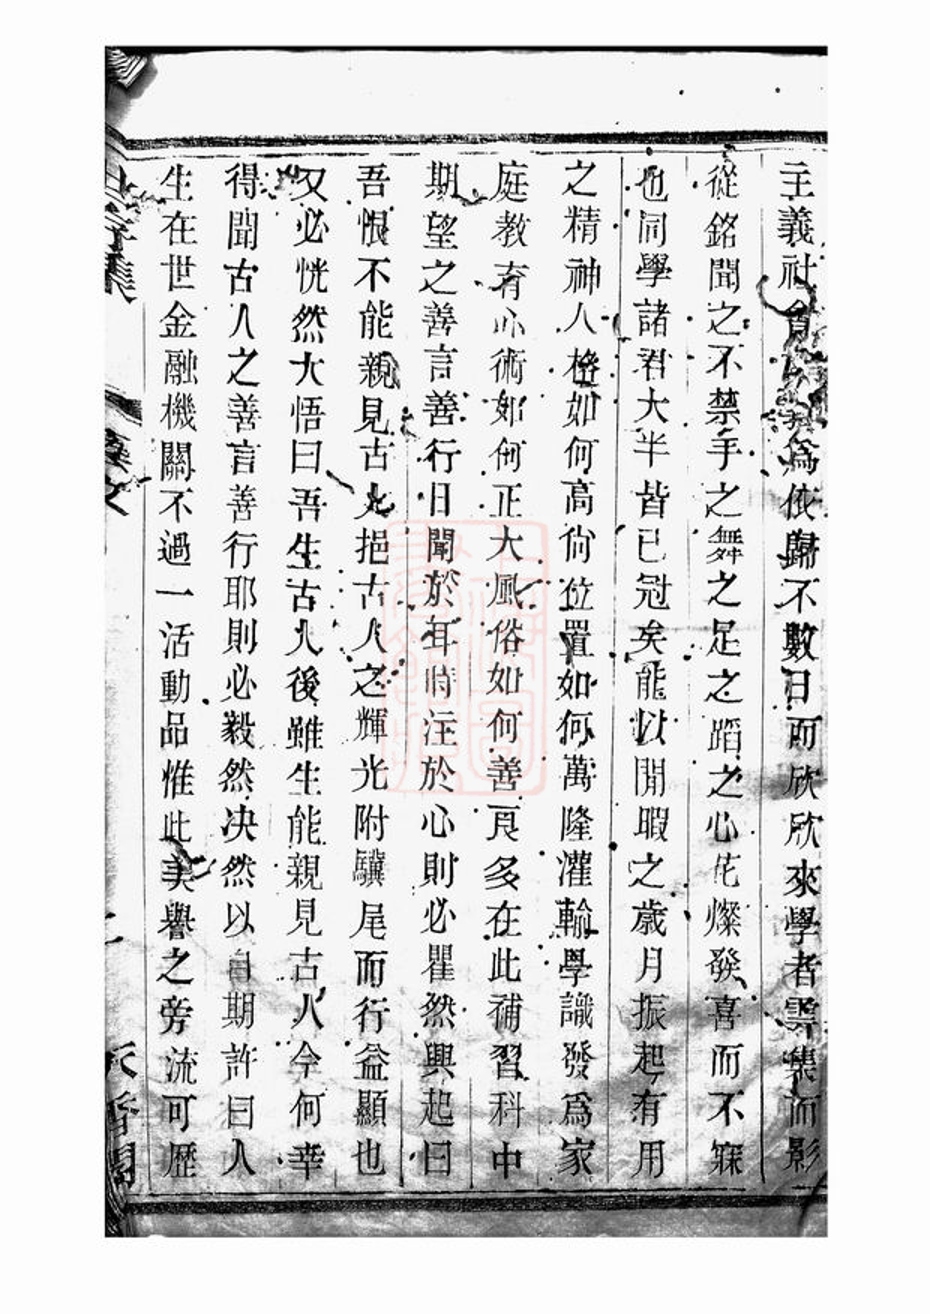 主義社貧爲依歸不數日而欣欣來學者雲集而影
從銘聞之不禁手之舞之足之蹈之心花燦發喜而不寐
也同學諸君大半皆已冠矣能以閒暇之歲月振起有用
之精神人格如何高尙位置如何萬隆灌輸學識發爲家
庭教育心術如何正大風俗如何善良多在此補習科中
期望之善言善行日聞於耳時注於心則必瞿然興起曰
吾恨不能親見古人挹古人之輝光附驥尾而行益顯也
又必恍然大悟曰吾生古人後雖生能親見古人今何幸
得聞古人之善言善行耶則必毅然决然以自期許曰人
生在世金融機關不過一活動品惟此美譽之旁流可歷
集